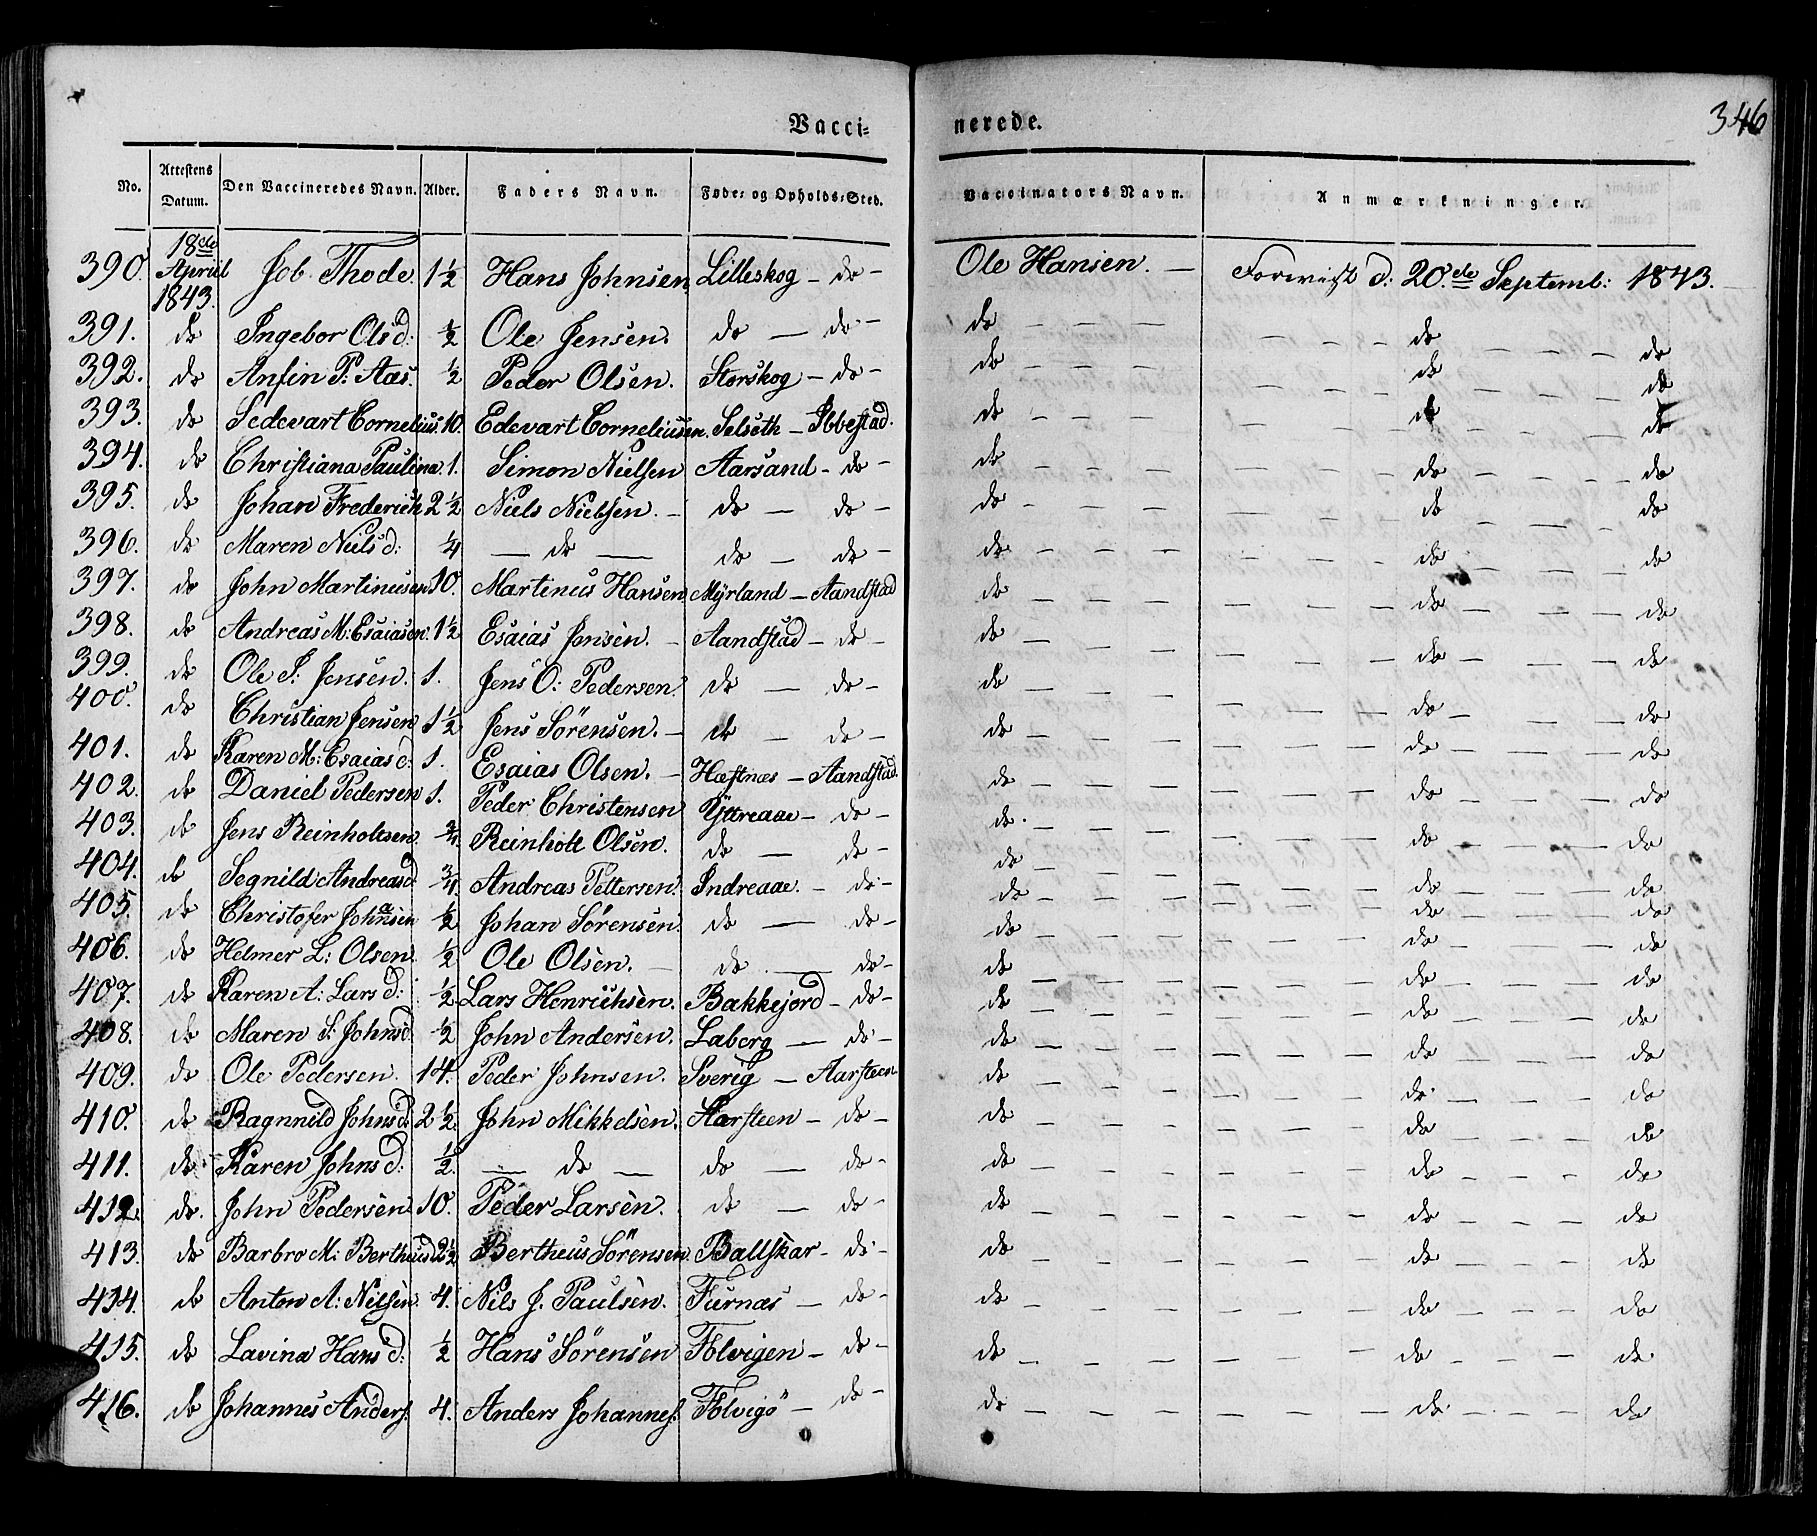 Vacci= nerede. 346
No. Attestens Datum. Den Vaccineredes Navn. Alder. Faders Navn. Føde= og Opholds=Sted. Vaccinators Navn. Anmærkninger.
390. 18de April 1843. Job. Thode. 1½ Hans Johnsen. Lilleskog – do – Ole Hansen. — Forevist d: 20de Septemb: 1843.
391. do Ingebor Olsd: ½ Ole Jensen. do — do – do – – – do – – – do
392. do Anfin P: Aas. ½ Peder Olsen. Storskog – do – do – – – do – – – do
393. do Sedevart Cornelius. 10. Edevart Corneliusen. Selseth – Ibbestad. do – – – do – – – do
394. do Christiana Paulina. 1. Simon Nielsen Aarsand – do – do – – – do – – – do
395. do Johan Frederich 2½ Niels Nielsen. – do — do – do – – – do – – – do
396. do Maren Neilsd: ¼ — do — do — do – do – – – do – – – do
397. do John Martinusen 10. Martinus Hansen Myrland – Aandstad do – – – do – – – do
398. do Andreas M: Esaiasen. 1½ Esaias Jensen. – Aandstad – do – do – – – do – – – do
399. do Ole J: Jensen. 1. Jens O: Pedersen. do — do – do – – – do – – – do
400. do Christian Jensen 1½ Jens Sörensen. – do – do – do – – – do – – – do
401. do Karen M: Esaiasd: 1. Esaias Olsen. – Hæstnæs – Aandstad. do – – – do – – – do
402. do Daniel Pedersen 1. Peder Christensen Yttreaae – do – do. – – – do – – – do
403. do Jens Reinholtsen. ¾ Reinholt Olsen. do — do – do – – – do – – – do
404. do Segnild Andreasd ¾ Andreas Pettersen. Indreaae. – do – do – – – do – – – do
405. do Christofer Johansen ½ Johan Sörensen. do — do – do – – – do – – – do
406. do Helmer L: Olsen. ½ Ole Olsen. – do — do – do – – – do – – – do
407. do Karen A: Larsd: ½ Lars Henrichsen. Bakkejord – do – do – – – do – – – do
408. do Maren S: Johnsd. ½ John Andersen. Laberg — do – do – – – do – – – do
409. do Ole Pedersen. 14. Peder Johnsen. Sverig – Aarsteen do – – – do – – – do
410. do Ragnnild Johnsd. 2½ John Mikkelsen. Aarsteen – do – do – – – do – – – do
411. do Karen Johnsd: ½. — do — do — do – do – – – do – – – do
412. do. John Pedersen 10. Peder Larsen. do — do – do – – – do – – – do
413. do Barbro M: Bertheusd 2½ Bertheus Sörensen. Ballskar – do – do – – – do – – – do
414. do Anton A: Nilsen. 4. Nils J. Paulsen. Furnæs – do – do – – – do – – – do
415. do Lavina Hansd: ½ Hans Sörensen Folvigen – do – do – – – do – – – do
416. do Johannes Anders. 4. Anders Johannes. Folvigö – do – do – – – do – – – do